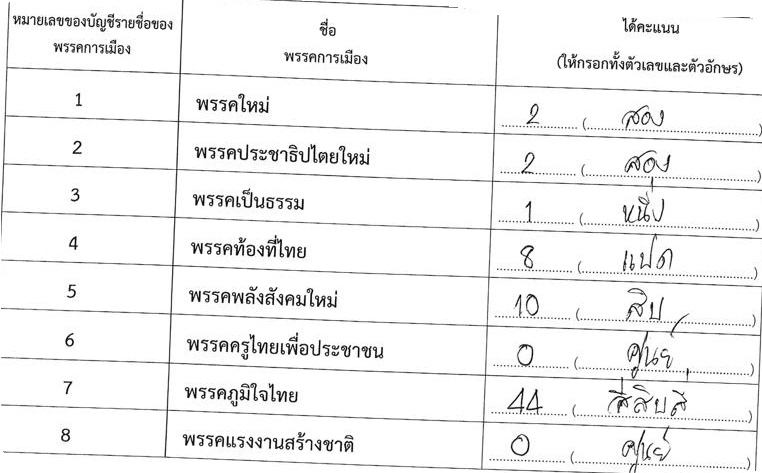 หมายเลขของบัญชีรายชื่อของ
พรรคการเมือง
ชื่อ
พรรคการเมือง
ได้คะแนน
(ให้กรอกทั้งตัวเลขและตัวอักษร)
1 พรรคใหม่ 2 (สอง)
2 พรรคประชาธิปไตยใหม่ 2 (สอง)
3 พรรคเป็นธรรม 1 (หนึ่ง)
4 พรรคท้องที่ไทย 8 (แปด)
5 พรรคพลังสังคมใหม่ 10 (สิบ)
6 พรรคครูไทยเพื่อประชาชน 0 (ศูนย์)
7 พรรคภูมิใจไทย 44 (สี่สิบสี่)
8 พรรคแรงงานสร้างชาติ 0 (ศูนย์)